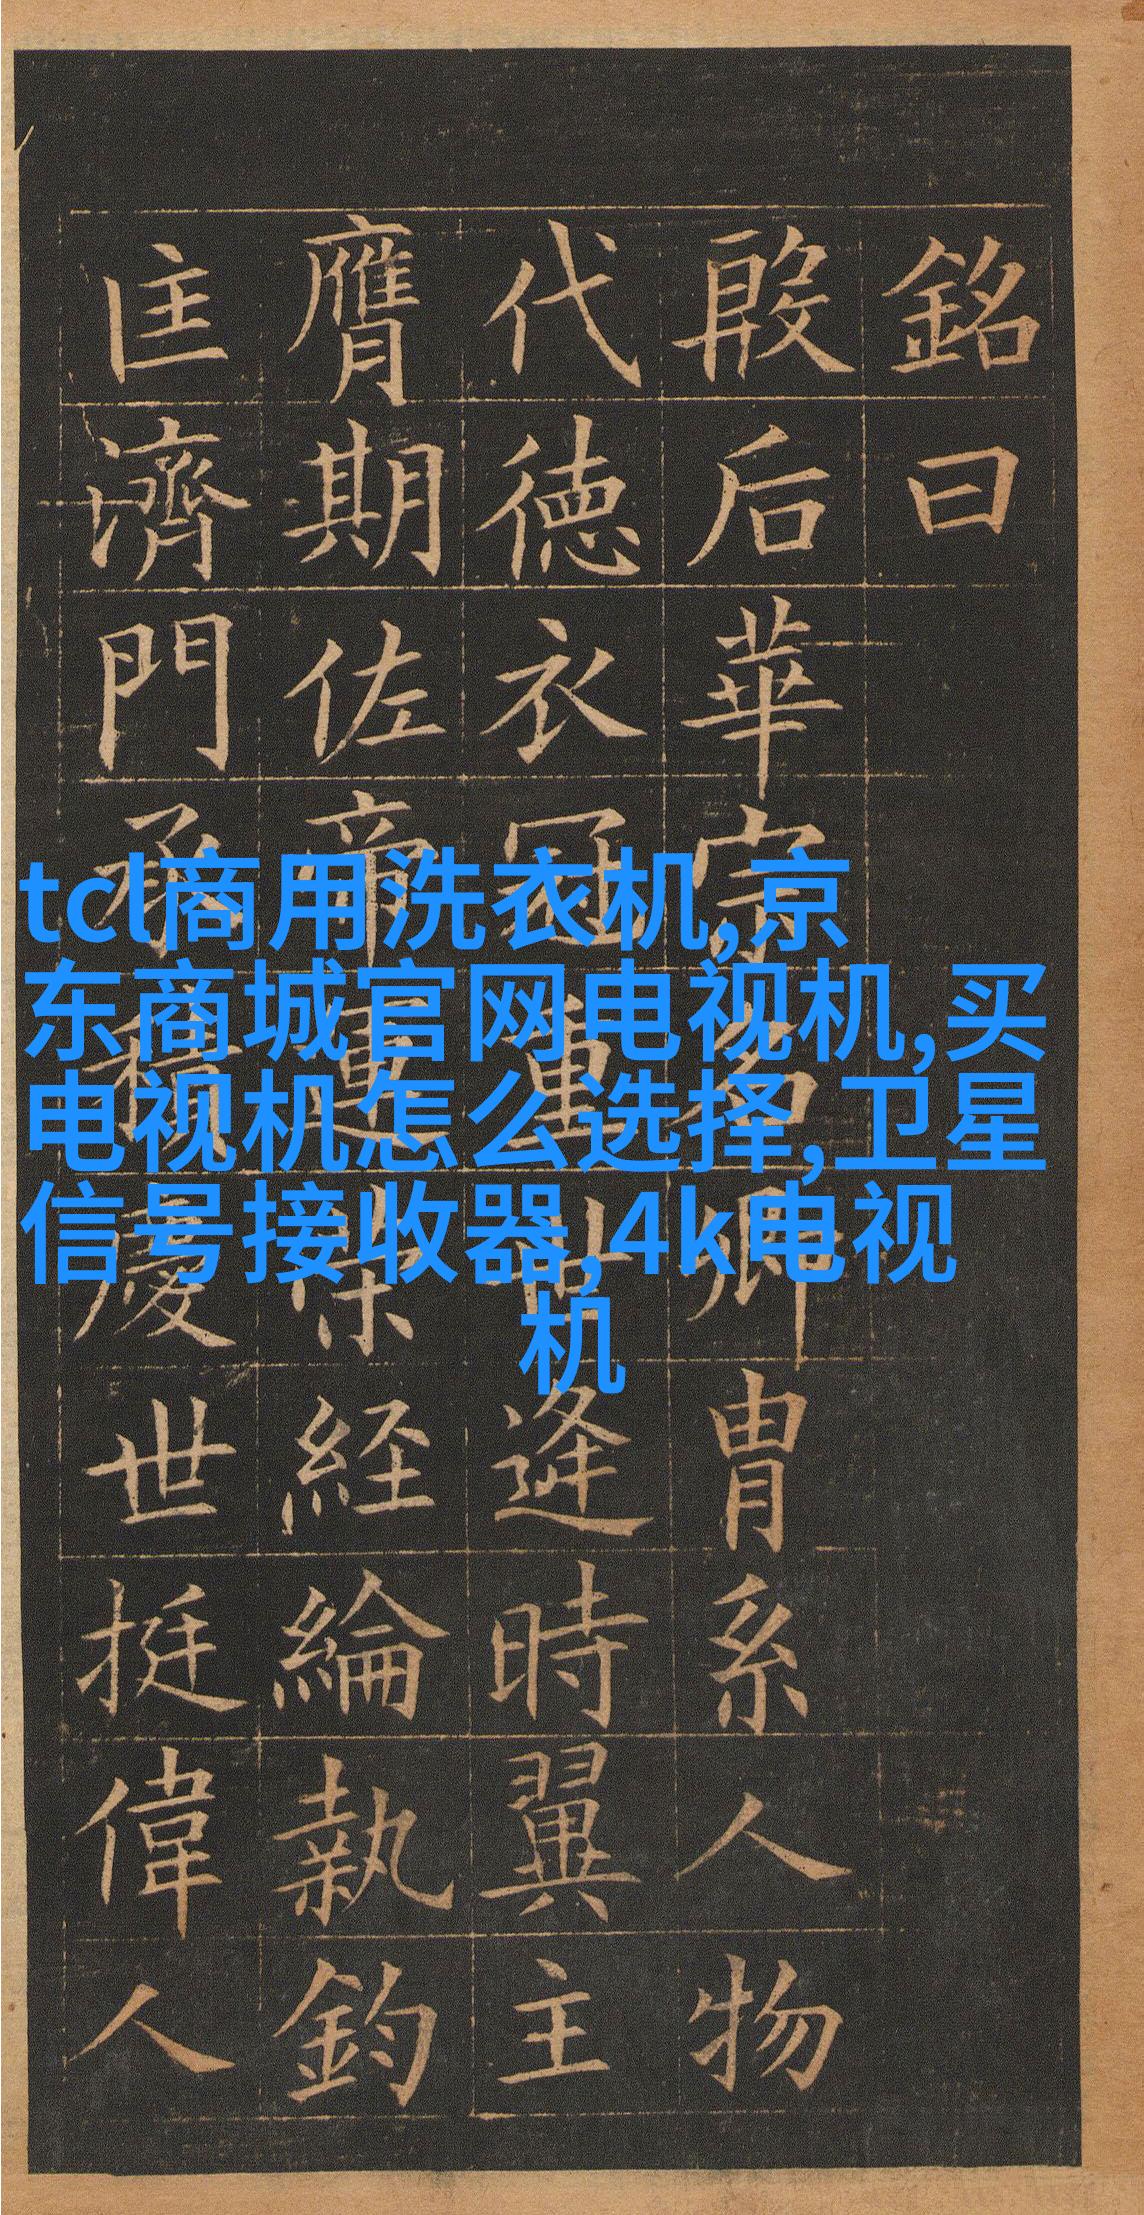 銘曰
殷后華宗名卿冑系人物
代德衣冠重世逢時翼主
膺期佐帝運策經綸執鈞
匡濟門承積慶世挺偉人
tcl商用洗衣机,京
东商城官网电视机,买
电视机怎么选择,卫星
信号接收器,4k电视
机